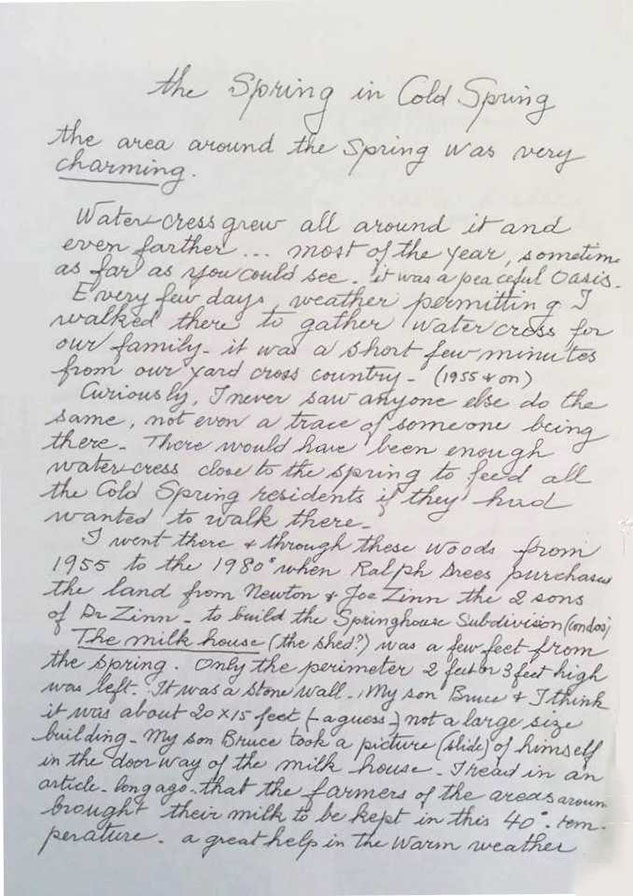 the Spring in Cold Spring
the area around the Spring was very
charming.
Water-cress grew all around it and
even farther ... most of the year, sometime
as far as you could see. it was a peaceful Oasis.
Every few days, weather permitting I
walked there to gather water cress for
our family - it was a short few minutes
from our yard cross country - (1955 & on)
Curiously, I never saw anyone else do the
same, not even a trace of someone being
there - There would have been enough
water-cress close to the spring to feed all
the Cold Spring residents if they had
wanted to walk there -
I went there & through these woods from
1955 to the 1980s when Ralph Drees purchased
the land from Newton & Joe Zinn the 2 sons
of Dr Zinn - to build the Springhouse Subdivision (condos)
The milk house (the shed?) was a few feet from
the spring. Only the perimeter 2 feet or 3 feet high
was left. It was a stone wall. My son Bruce & I think
it was about 20 x 15 feet (- a guess -) not a large size
building - My son Bruce took a picture (slide) of himself
in the doorway of the milk house - I read in an
article - long ago - that the farmers of the areas aroun
brought their milk to be kept in this 40° tem-
perature - a great help in the warm weather